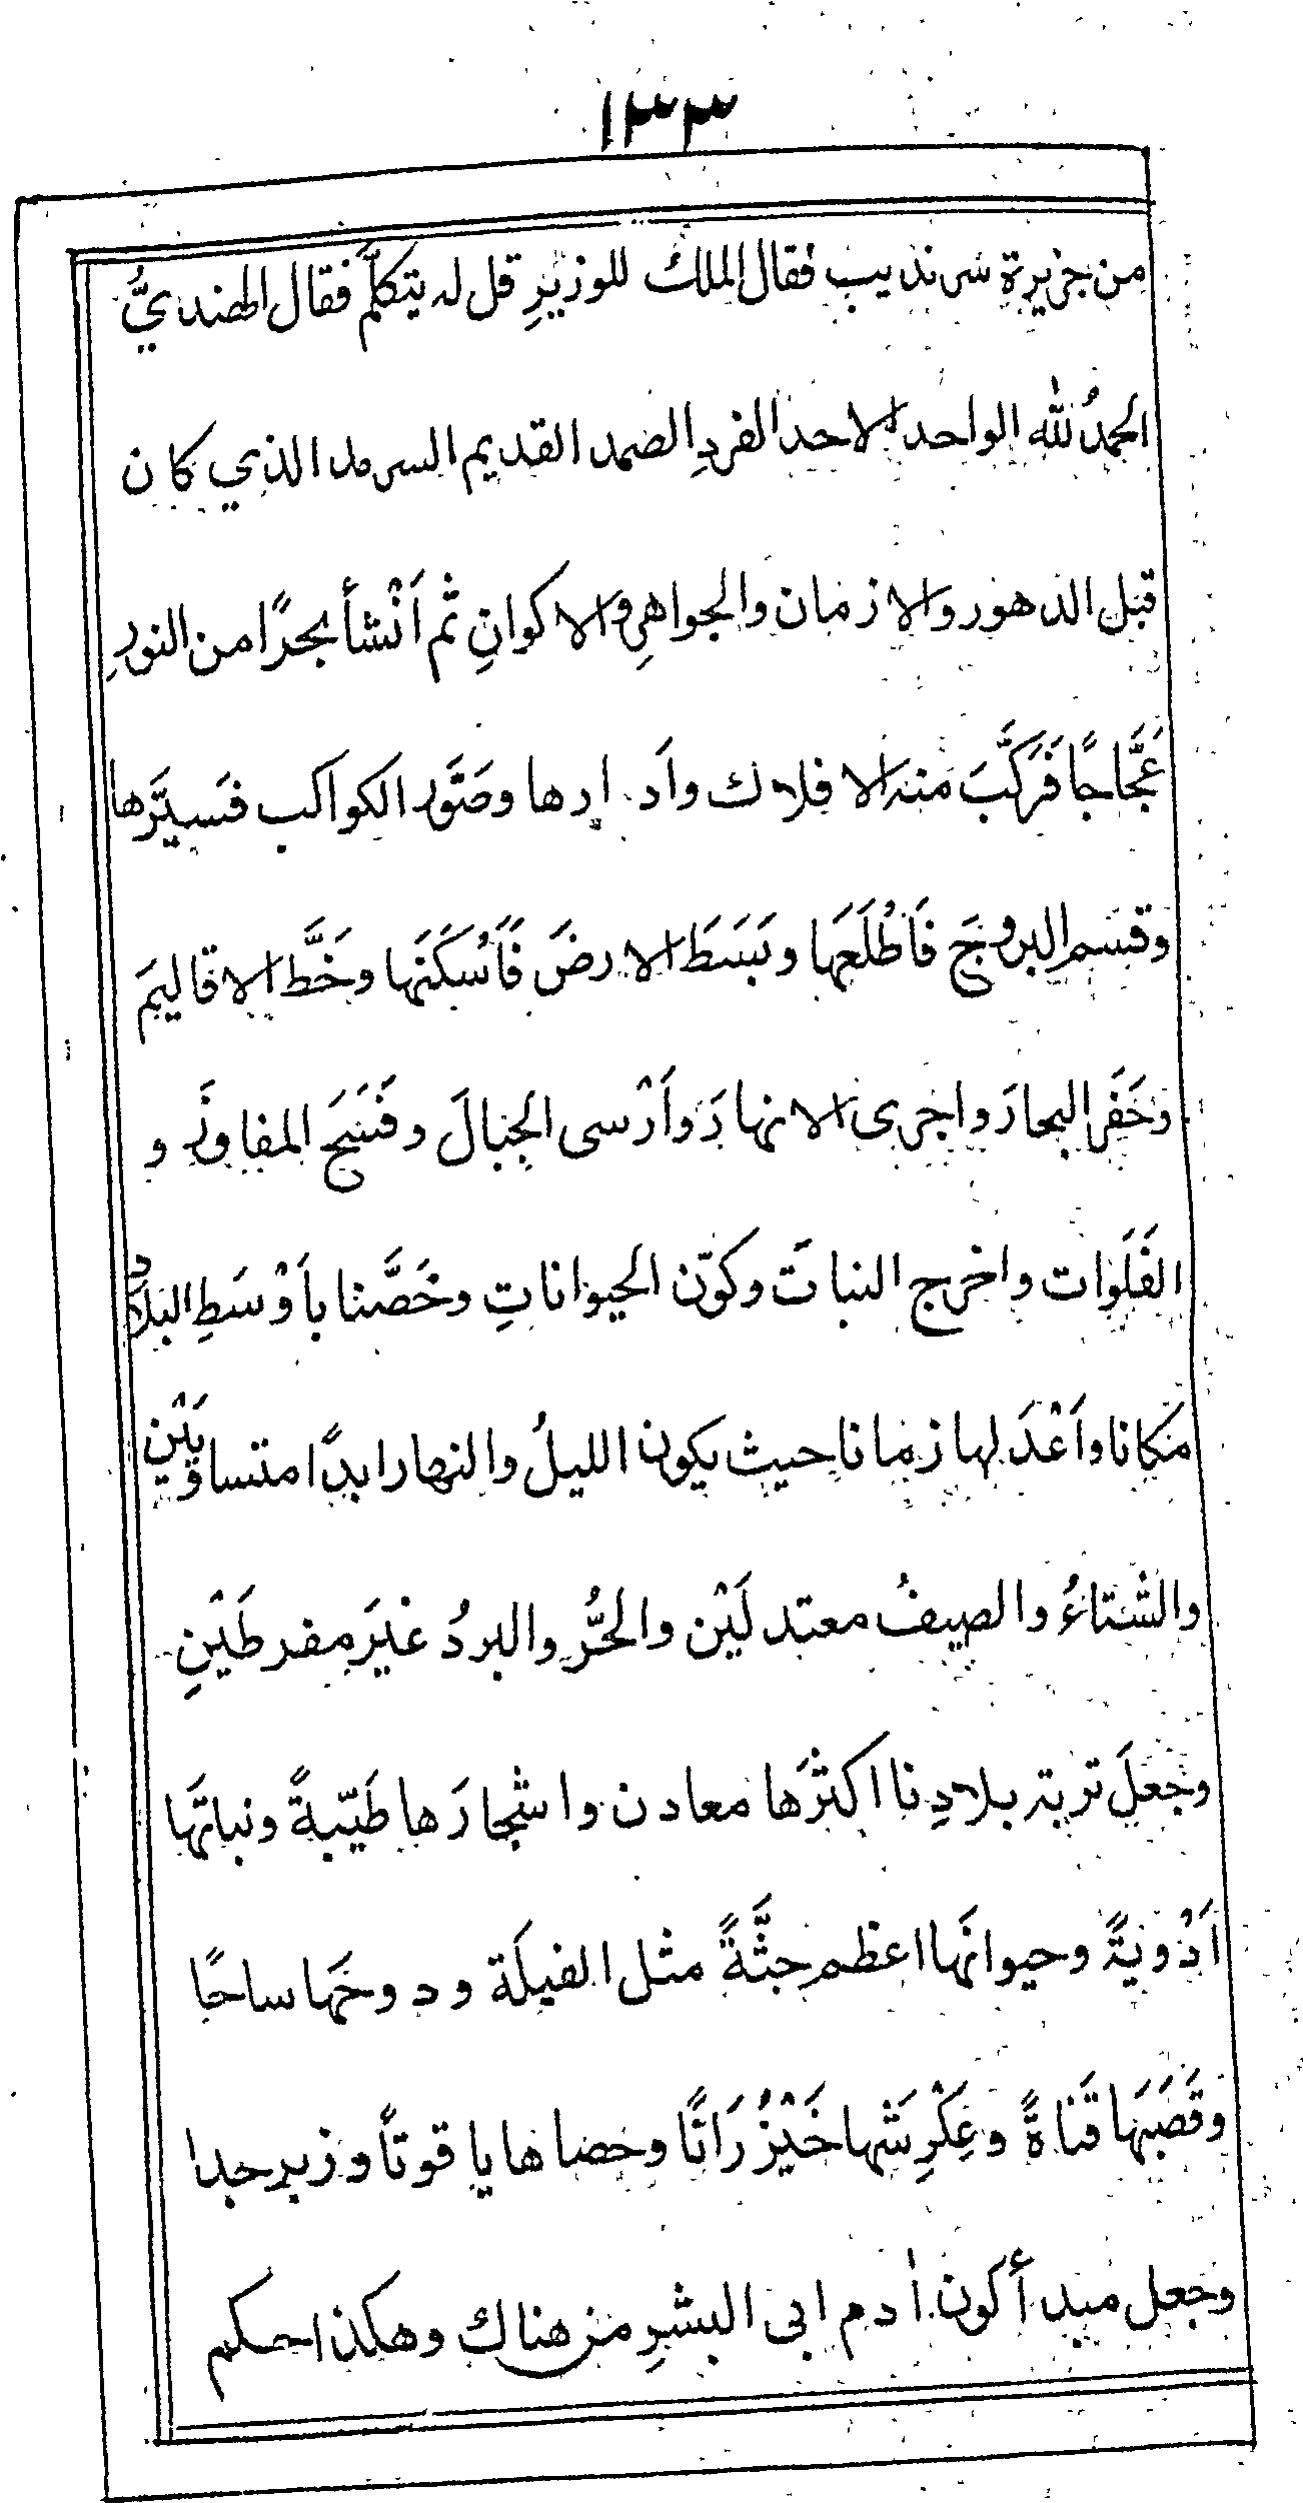 ١٣٣
من جزيرة سرنديب فقال الملك للوزيرِ قل له يتكلّم فقال الهنديُّ
الحمدُ لله الواحد الاحد الفردِ الصمد القديم السرمد الذي كان
قبل الدهور والازمان والجواهرِ والاكوانِ ثم اَنْشأ بحرًا من النورِ
عَجَّاجًا فَرَكَّبَ منه الافلاك واَدارها وصَوَّر الكواكب فسيَّرها
وقسم البروجَ فَاَطْلَعَها وبَسَطَ الارضَ فَاَسْكَنَها وخَطَّ الاقاليمَ
وحَفَر البحارَ واجرى الانهارَ وَاَرْسى الجبالَ وفَسَحَ المفاوزَ و
الفَلَوَات واخرج النباتَ وكوّن الحيواناتِ وخَصَّنا باَوْسَطِ البلاد
مَكانا واَعْدَلها زمانا حيث يكون الليلُ والنهار ابدًا متساويَيْن
والشتاءُ والصيفُ معتدلَيْن والحُّر والبردُ غيَر مفرطَيْنِ
وجعلَ تربة بلادِنا اكثرَها معادن واشجارَها طَيّبةً ونباتَها
اَدْويَةً وحيوانَها اعظم جثَّةً مثل الفيلَة ودوحَها ساجًا
وقَصَبَها قَناةً وعِكْرِشَها خَيْزُرَانًا وحصاها ياقوتاً وزبرجدا
وجعل مبدأ كون اٰدم ابى البشرِ من هناك وهكذا حكم